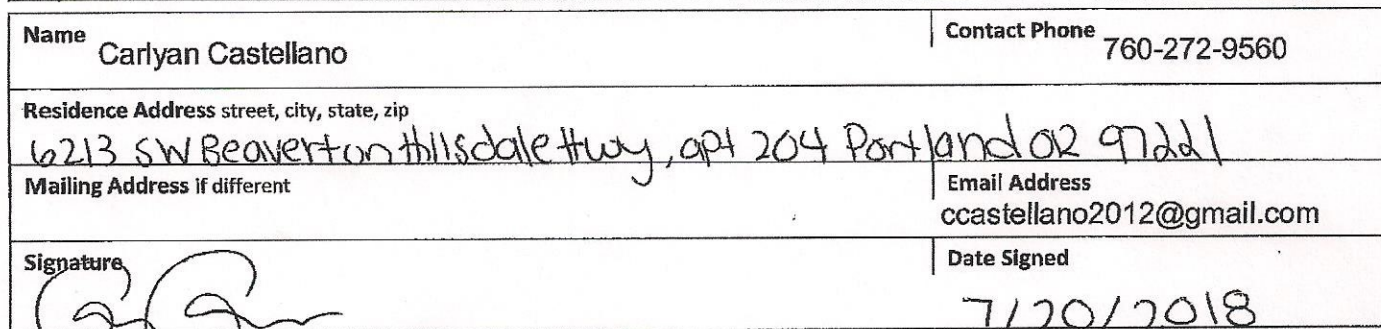 Name Carlyan Castellano Contact Phone 760-272-9560
Residence Address street, city, state, zip
6213 SW Beaverton Hillsdale Hwy, apt 204 Portland OR 97221
Mailing Address if different Email Address
ccastellano2012@gmail.com
Signature Date Signed
7/20/2018